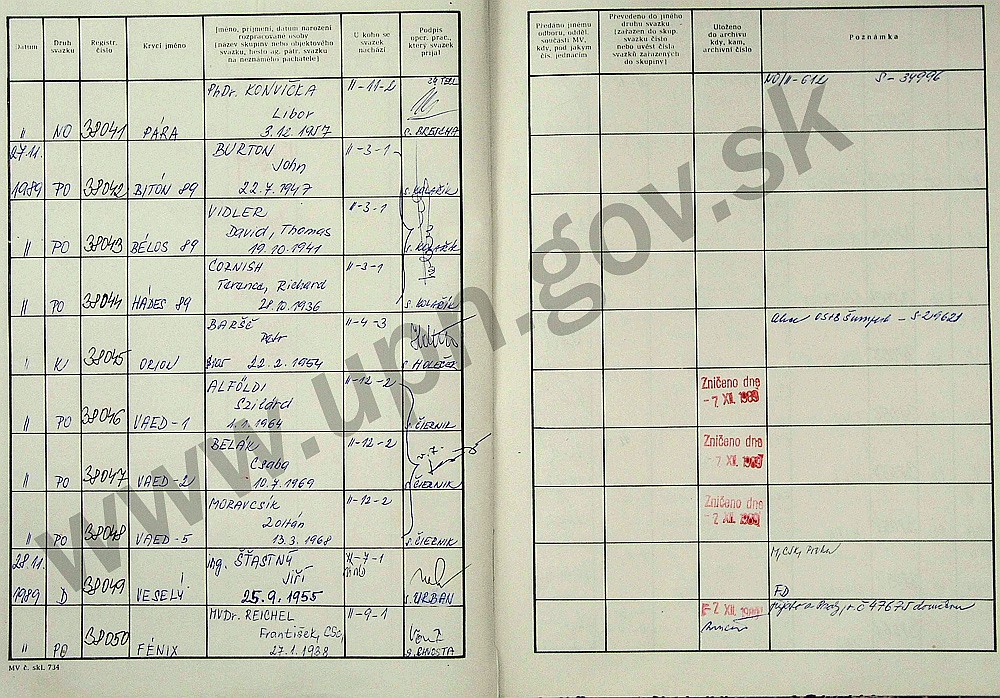 Datum
Druh svazku
Registr. číslo
Krycí jméno
Jméno, příjmení, datum narození rozpracované osoby
[název skupiny nebo objektového svazku, heslo ag. pátr. svazku na neznámého pachatele]
U koho se svazek nachází
Podpis oper. prac., který svazek přijal
Předáno jinému odboru, odděl. součásti MV, kdy, pod jakým čís. jednacím
Převedeno do jiného druhu svazku [zařazen do skup. svazku číslo nebo uvést čísla svazků zařazených do skupiny]
Uloženo do archivu kdy, kam, archivní číslo
Poznámka
PhDr. KONVIČKA II-11-2
Libor
" NO 38041 PÁRA 3.12.1957 s. BREICHA
NO/II-612 S-34996
27.11. BURTON II-3-1
John
1989 PO 38042 BITÓN 89 22.7.1947 s. KOLAŘÍK
VIDLER II-3-1
David, Thomas
" PO 38043 BÉLOS 89 19.10.1941 s. KOLAŘÍK
CORNISH II-3-1
Terence, Richard
" PO 38044 HÁDES 89 28.10.1936 s. KOLAŘÍK
BARŠČ II-4-3
Petr
" K 38045 ORION 22.2.1954 s. HOLEČEK
OSTB Šumperk - S-219621
ALFÖLDI II-12-2
Szilárd
" PO 38046 VAED-1 1.1.1964 s. ČIERNIK
Zničeno dne
-7. XII. 1989
BELÁK II-12-2
Csaba
" PO 38047 VAED-2 10.7.1969 s. ČIERNIK
Zničeno dne
-7. XII. 1989
MORAVCSÍK II-12-2
Zoltán
" PO 38048 VAED-5 13.3.1968 s. ČIERNIK
Zničeno dne
-7. XII. 1989
28.11. ing. ŠŤASTNÝ -7-1
Jiří
1989 D 38049 VESELÝ 25.9.1955 s. URBAN
Praha
FD
MVDr. REICHEL II-9-1
František, CSc.
" PO 38050 FÉNIX 27.1.1938 s. CHVOSTA
-7. XII. 1989
MV č. skl. 734
www.upn.gov.sk